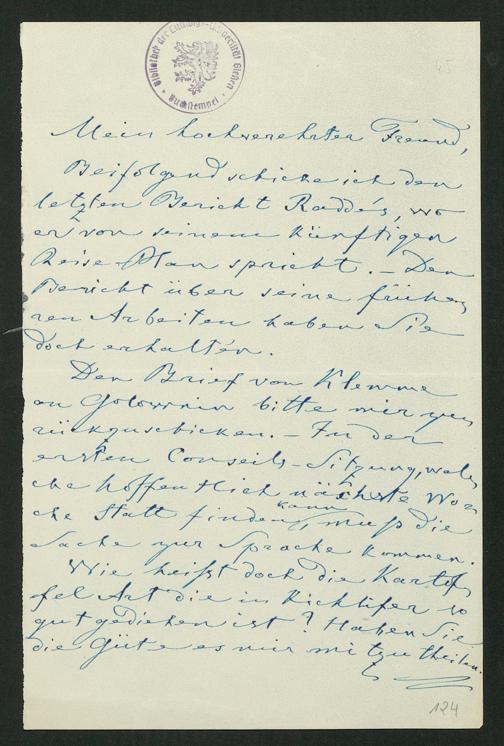 Bibliothek der Ludwigs-Universität Giessen
Buchstempel
45
Mein hochverehrter Freund,
Beifolgend schicke ich den
letzten Bericht Raddes, wo
er von seinem künftigen
Reise-Plan spricht. – Den
Bericht über seine frühe-
ren Arbeiten haben Sie
doch erhalten.
Den Brief von Klemme
an Golownin bitte mir zu-
rückzuschicken. – In der
ersten Conseils-Sitzung, wel-
che hoffentlich nächste Wo-
che Statt finden kann, muß die
Sache zur Sprache kommen.
Wie heißt doch die Kartof-
fel Art die in so
gut gediehen ist? Haben Sie
die Güte es mir mitzutheilen.
124